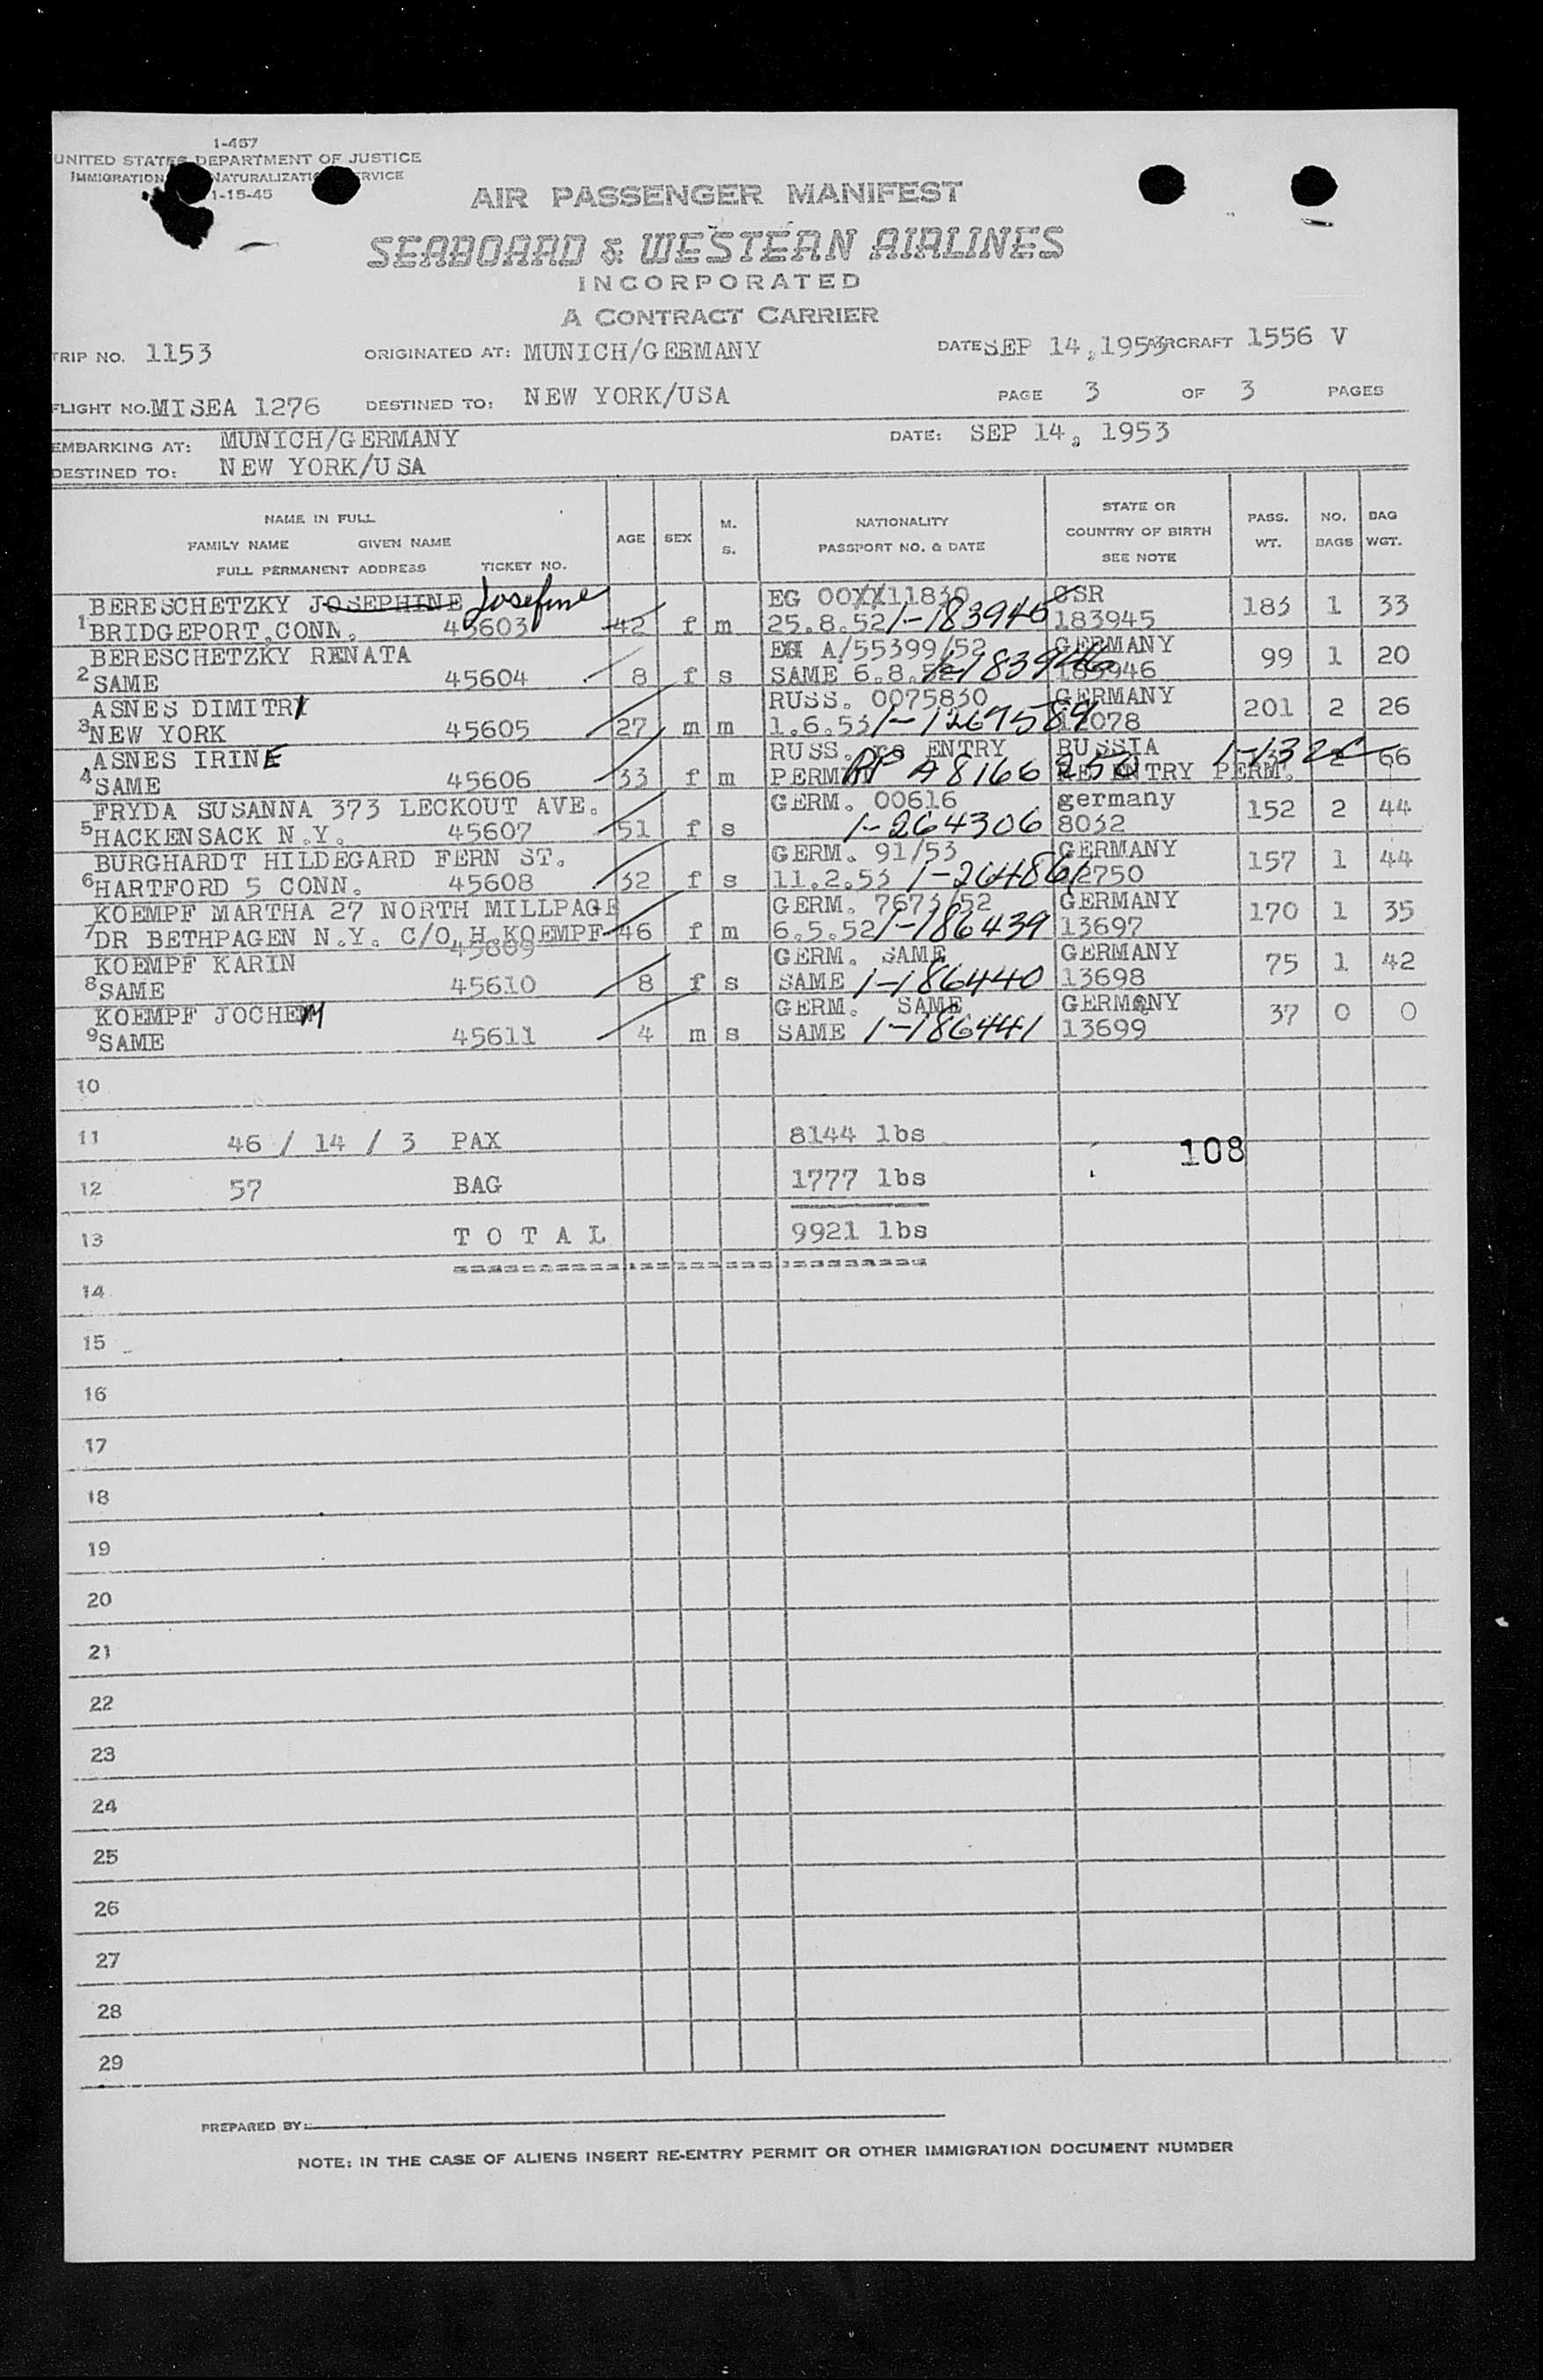 1-467
UNITED STATES DEPARTMENT OF JUSTICE
IMMIGRATION NATURALIZATION SERVICE
1-15-45
AIR PASSENGER MANIFEST
SEABOARD & WESTERN AIRLINES
INCORPORATED
A CONTRACT CARRIER
TRIP NO. 1153 ORIGINATED AT: MUNICH/GERMANY DATE SEP 14, 1953 AIRCRAFT 1556 V
FLIGHT NO. MISEA 1276 DESTINED TO: NEW YORK/USA PAGE 3 OF 3 PAGES
EMBARKING AT: MUNICH/GERMANY DATE: SEP 14, 1953
DESTINED TO: NEW YORK/USA
NAME IN FULL AGE SEX M. S. NATIONALITY STATE OR PASS. NO. BAG
FAMILY NAME GIVEN NAME PASSPORT NO. & DATE COUNTRY OF BIRTH WT. BAGS WGT.
FULL PERMANENT ADDRESS TICKET NO. SEE NOTE
BERESCHETZKY JOSEPHINE Josefine EG 00XX11830 CSR 183 1 33
1 BRIDGEPORT, CONN. 45603 42 f m 25.8.52 1-183945 183945
BERESCHETZKY RENATA EG A/55399/52 GERMANY 99 1 20
2 SAME 45604 8 f s SAME 6.8.52 1-183946 183946
ASNES DIMITRY RUSS. 0075830 GERMANY 201 2 26
3 NEW YORK 45605 27 m m 1.6.53 1-1267589 12078
ASNES IRINE RUSS. re ENTRY RUSSIA 1-132 66
4 SAME 45606 33 f m PERMIT RP A8166250 RE ENTRY PERM.
FRYDA SUSANNA 373 LECKOUT AVE. GERM. 00616 germany 152 2 44
5 HACKENSACK N.Y. 45607 51 f s 1-264306 8032
BURGHARDT HILDEGARD FERN ST. GERM. 91/53 GERMANY 157 1 44
6 HARTFORD 5 CONN. 45608 32 f s 11.2.53 1-264861 12750
KOEMPF MARTHA 27 NORTH MILLPAGE GERM. 7673/52 GERMANY 170 1 35
7 DR BETHPAGEN N.Y. C/O H.KOEMPF 46 f m 6.5.52 1-186439 13697
45609
KOEMPF KARIN GERM. SAME GERMANY 75 1 42
8 SAME 45610 8 f s SAME 1-186440 13698
KOEMPF JOCHEM GERM. SAME GERMANY 37 0 0
9 SAME 45611 4 m s SAME 1-186441 13699
10
11 46 / 14 / 3 PAX 8144 lbs 108
12 57 BAG 1777 lbs
13 T O T A L 9921 lbs
14
15
16
17
18
19
20
21
22
23
24
25
26
27
28
29
PREPARED BY:
NOTE: IN THE CASE OF ALIENS INSERT RE-ENTRY PERMIT OR OTHER IMMIGRATION DOCUMENT NUMBER